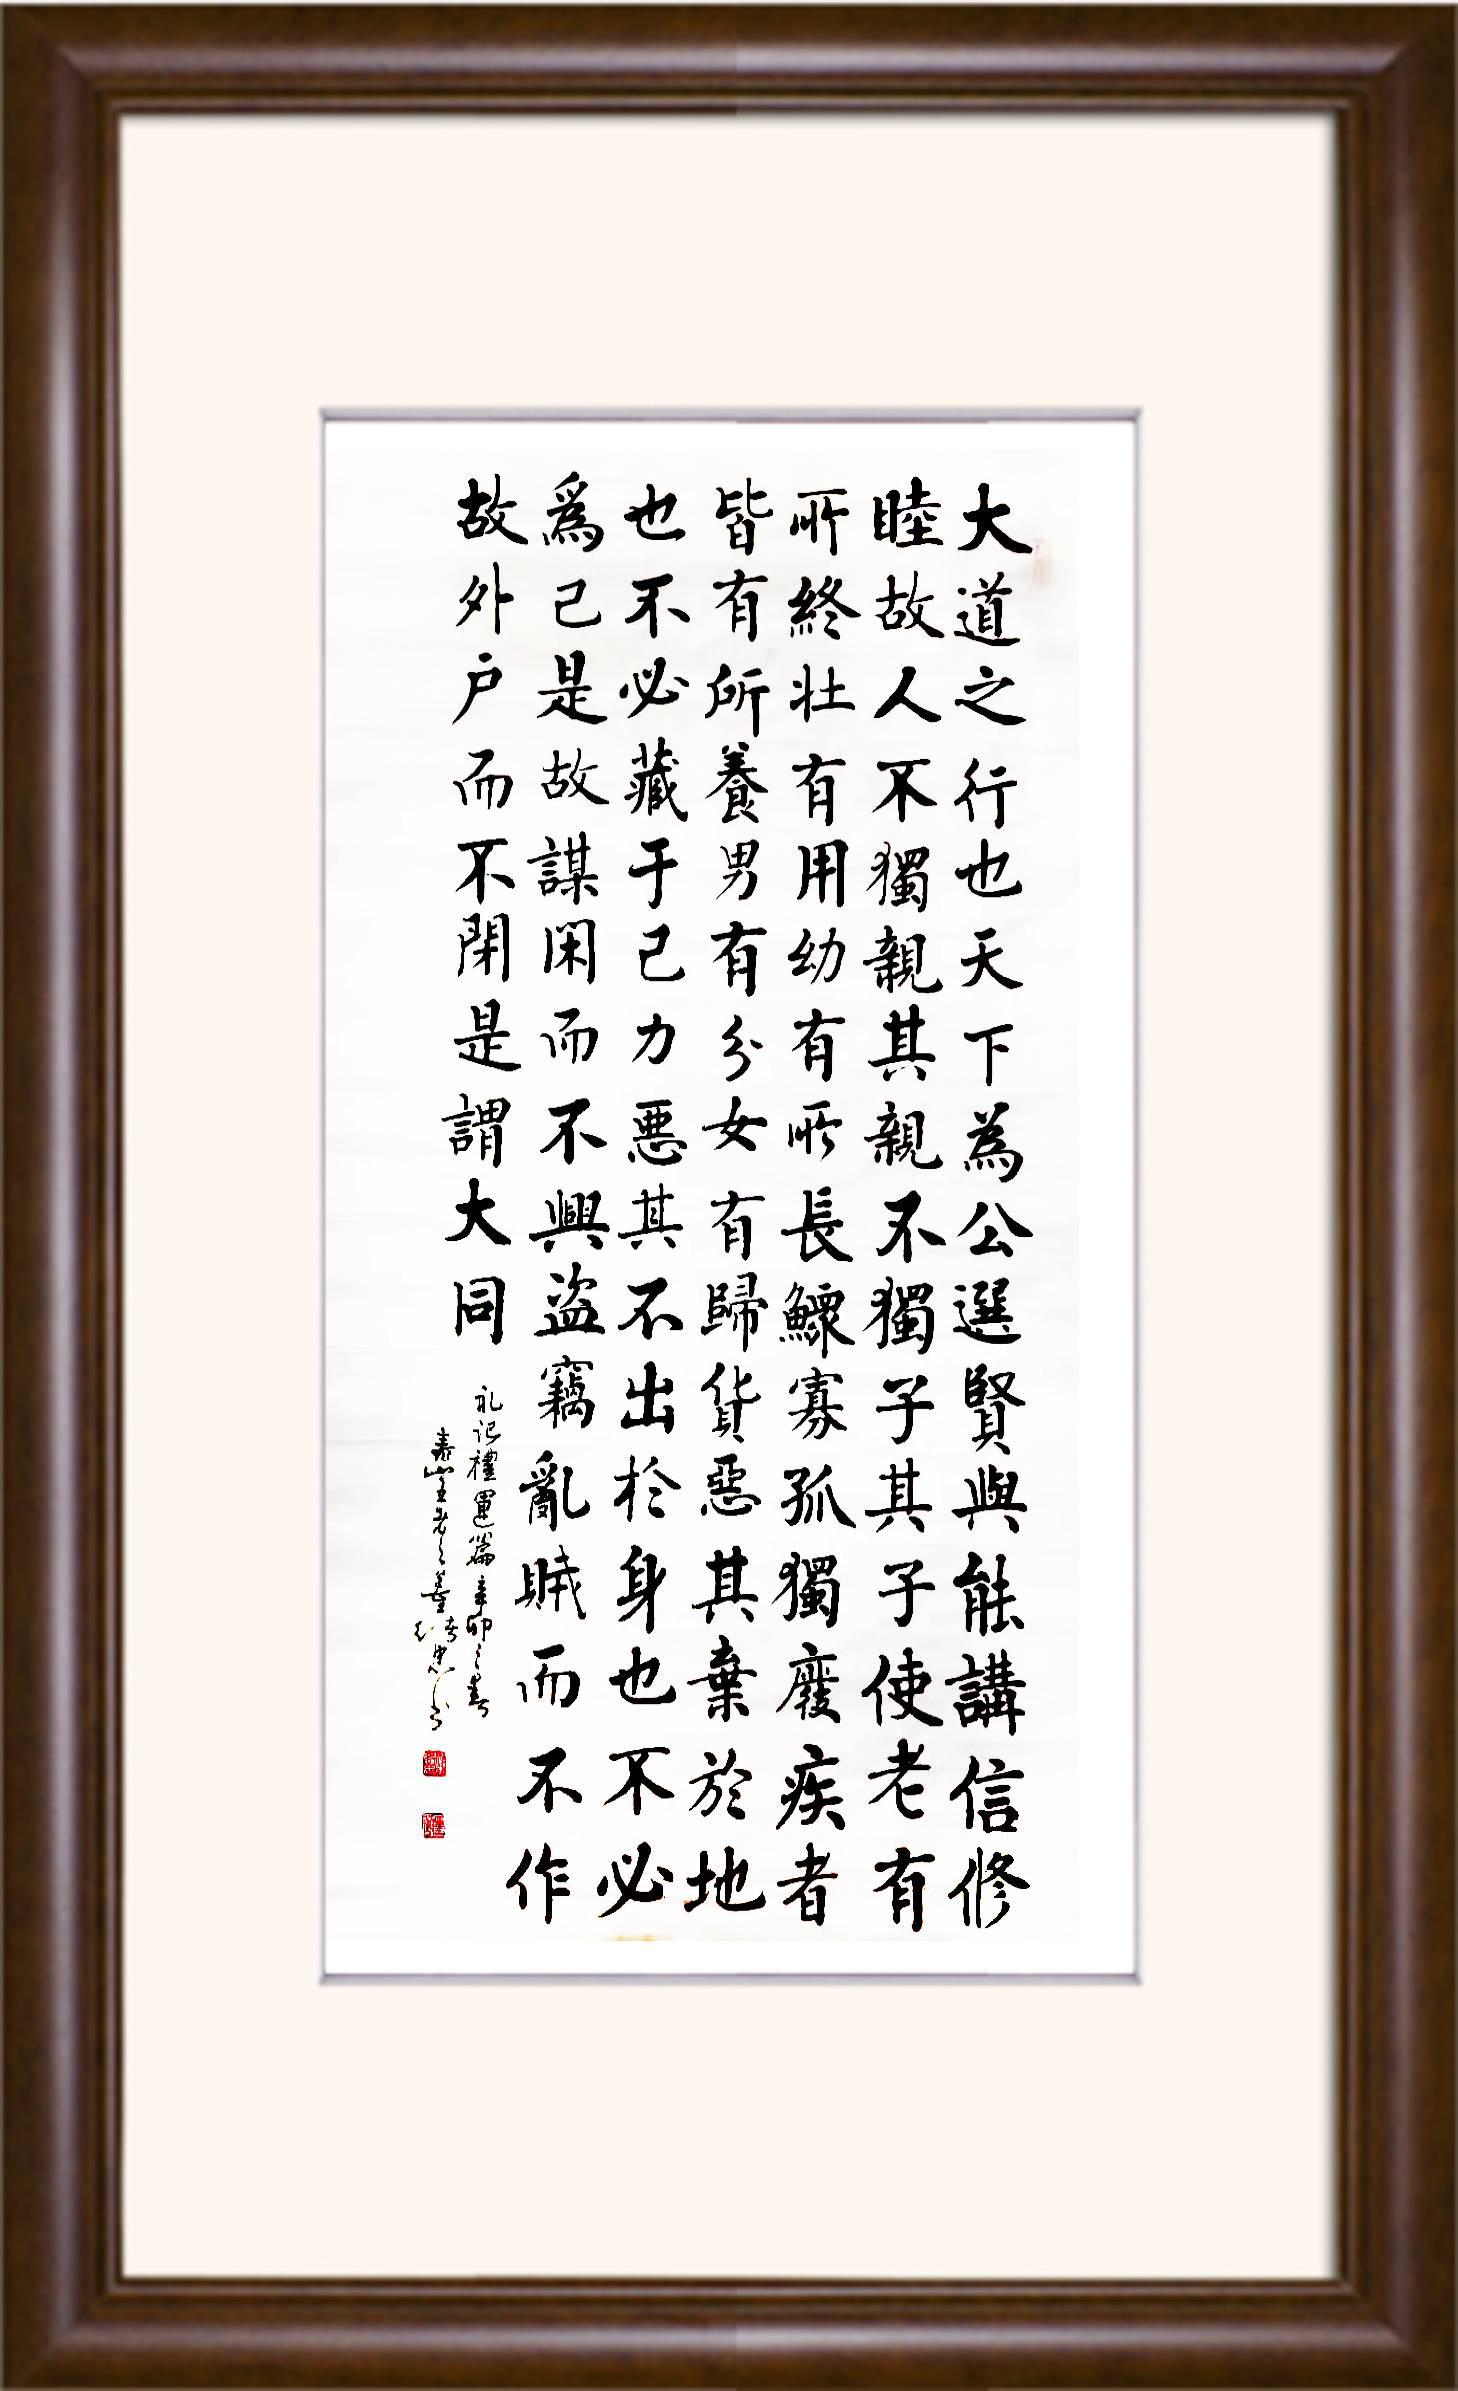 大道之行也天下為公選賢與能講信修
睦故人不獨親其親不獨子其子使老有
所終壯有用幼有所長鰥寡孤獨廢疾者
皆有所養男有分女有歸貨惡其棄於地
也不必藏于己力悪其不出於身也不必
爲己是故謀閑而不興盗竊亂賊而不作
故外户而不閉是謂大同
礼记禮運篇辛卯之春